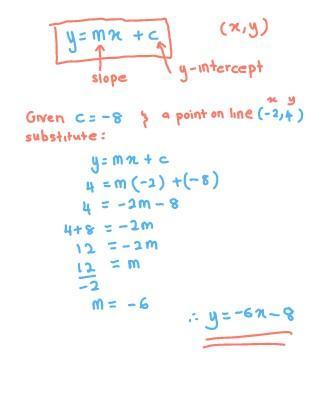 y = mx + c
(x, y)
slope
y-intercept
Given c = -8 } a point on line (-2, 4)
x y
substitute:
y = mx + c
4 = m(-2) + (-8)
4 = -2m - 8
4+8 = -2m
12 = -2m
12/-2 = m
m = -6
∴ y = -6x - 8